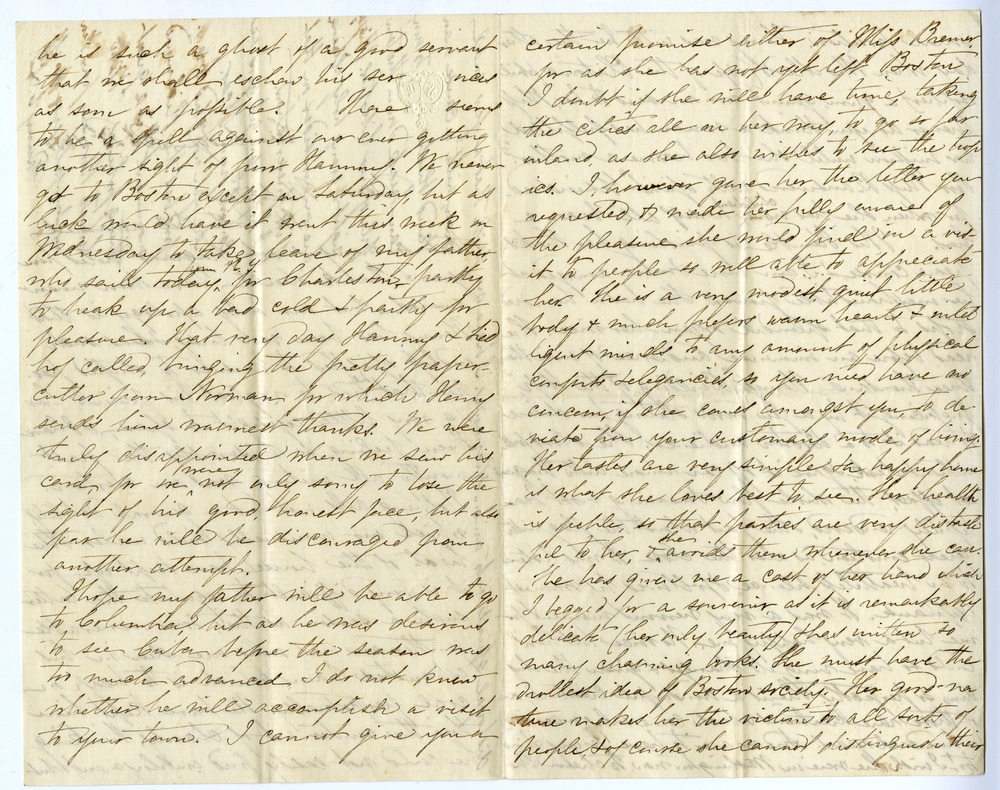 he is such a ghost of a good servant
that we shall eschew his services
as soon as possible. There seems
to be a spell against our ever getting
another sight of poor Hammy. We never
go to Boston except on Saturday, but as
luck would have it went this week on
Wednesday to take leave of my father
who sails today from N.Y. for Charleston, partly
to break up a bad cold & partly for
pleasure. That very day Hammy &
had called, bringing the pretty paper-
cutter from Norman for which Henry
sends him warmest thanks. We were
truly disappointed when we saw his
card, for we were not only sorry to lose the
sight of his good honest face, but also
fear he will be discouraged from
another attempt.
I hope my father will be able to go
to Columbia, but as he was desirous
to see Cuba before the season was
too much advanced I do not know
whether he will accomplish a visit
to your town. I cannot give you a
certain promise either of Miss Bremer,
for as she has not yet left Boston
I doubt if she will have time, taking
the cities all on her way, to go so far
inland, as she also wishes to see the trop
ics. I however gave her the letter you
requested, & made her fully aware of
the pleasure she would find in a vis
it to people so well able to appreciate
her. She is a very modest, quiet little
body & much prefers warm hearts & intel
ligent minds to any amount of physical
comforts & elegancies, so you need have no
concern, if she comes amongst you, to de
viate from your customary mode of living.
Her tastes are very simple & a happy home
is what she loves best to see. Her health
is feeble, so that parties are very distaste
ful to her, & she avoids them whenever she can.
She has given me a cast of her hand which
I begged for a souvenir as it is remarkably
delicate (her only beauty) & has written so
many charming books. She must have the
drollest idea of Boston society. Her good-na
ture makes her the victim to all sorts of
people & of course she cannot distinguish their